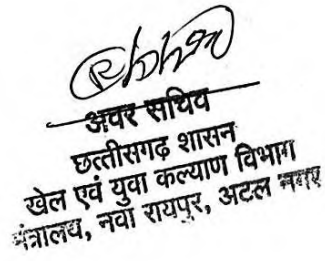 अवर सचिव
छत्तीसगढ़ शासन
खेल एवं युवा कल्याण विभाग
मंत्रालय, नवा रायपुर, अटल नगर